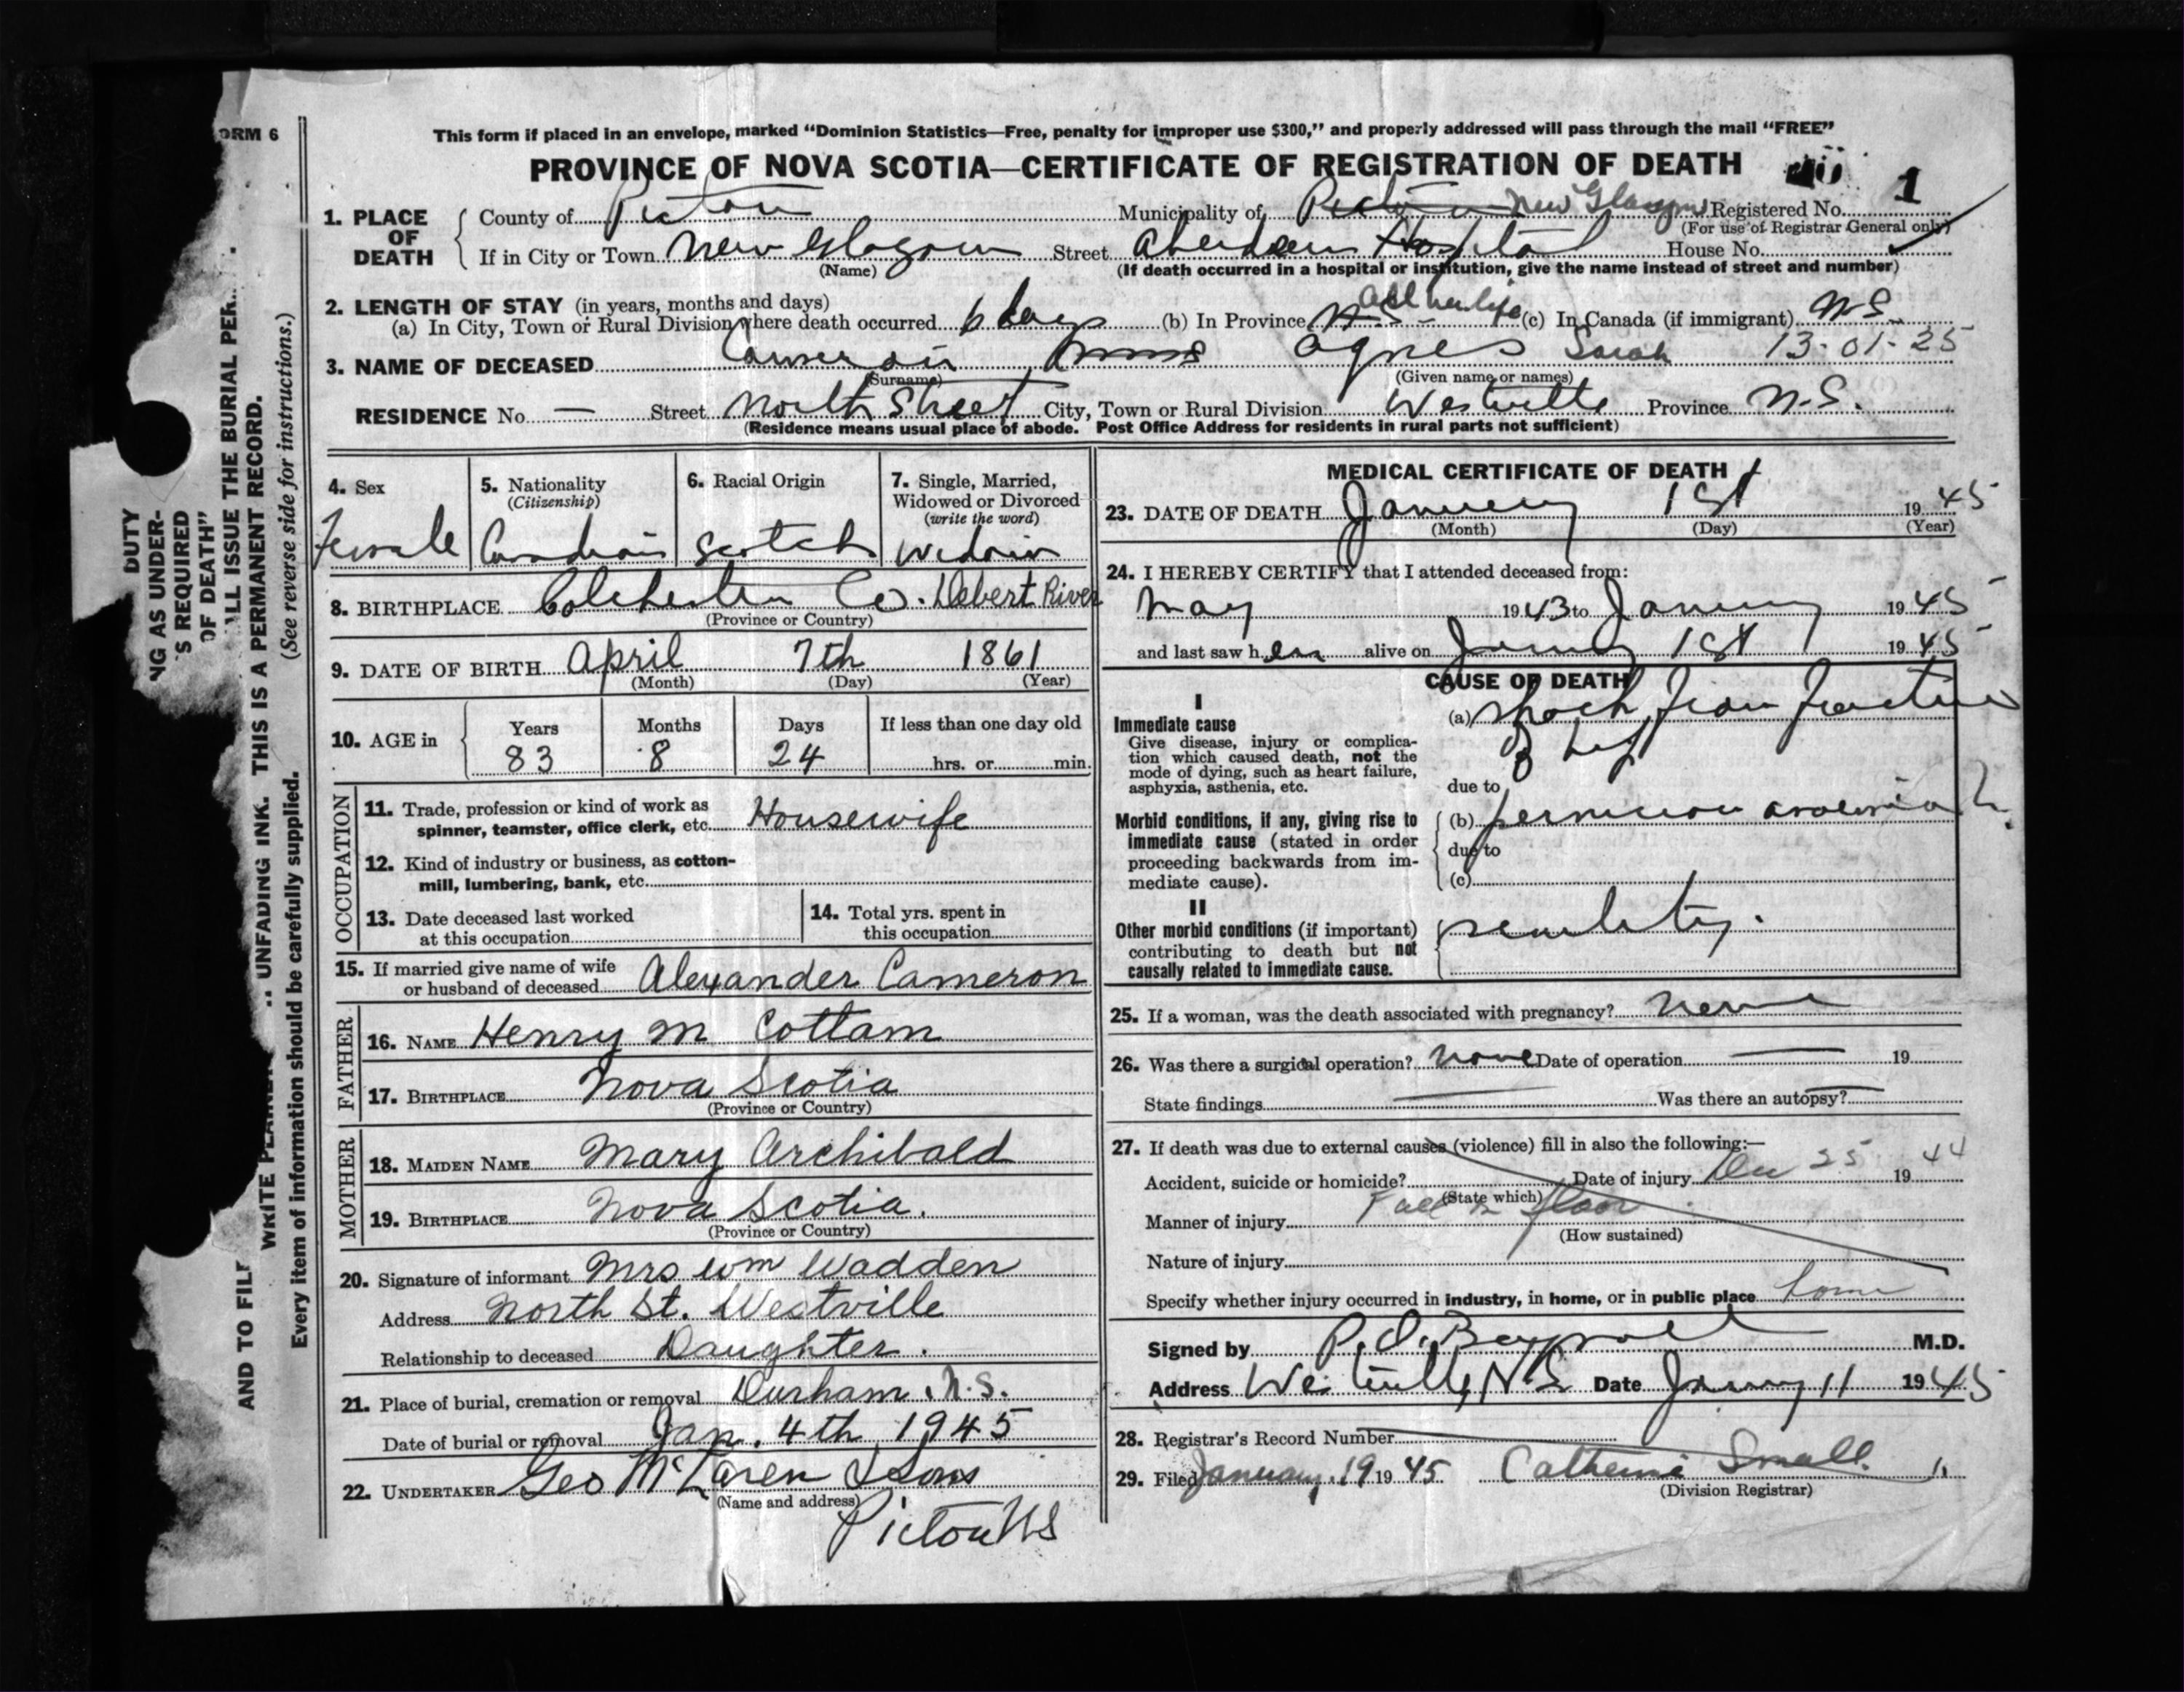 ORM 6
This form if placed in an envelope, marked "Dominion Statistics—Free, penalty for improper use $300," and properly addressed will pass through the mail "FREE"
PROVINCE OF NOVA SCOTIA—CERTIFICATE OF REGISTRATION OF DEATH
1
1. PLACE OF DEATH
County of Pictou Municipality of Pictou New Glasgow Registered No.
(For use of Registrar General only)
If in City or Town New Glasgow Street Aberdeen Hospital House No.
(Name) (If death occurred in a hospital or institution, give the name instead of street and number)
2. LENGTH OF STAY (in years, months and days)
(a) In City, Town or Rural Division where death occurred 6 days (b) In Province N.S. all her life (c) In Canada (if immigrant) N.S.
3. NAME OF DECEASED Cameron Agnes Sarah 13-01-25
(Surname) (Given name or names)
RESIDENCE No. — Street North Street City, Town or Rural Division Westville Province N.S.
(Residence means usual place of abode. Post Office Address for residents in rural parts not sufficient)
4. Sex Female
5. Nationality (Citizenship) Canadian
6. Racial Origin Scotch
7. Single, Married, Widowed or Divorced (write the word) Widow
8. BIRTHPLACE Colchester Co. Debert River
(Province or Country)
9. DATE OF BIRTH April 7th 1861
(Month) (Day) (Year)
10. AGE in
Years Months Days If less than one day old
83 8 24 hrs. or min.
OCCUPATION
11. Trade, profession or kind of work as
spinner, teamster, office clerk, etc. Housewife
12. Kind of industry or business, as cotton-
mill, lumbering, bank, etc.
13. Date deceased last worked
at this occupation
14. Total yrs. spent in
this occupation
15. If married give name of wife
or husband of deceased Alexander Cameron
FATHER
16. NAME Henry M Cottam
17. BIRTHPLACE Nova Scotia
(Province or Country)
MOTHER
18. MAIDEN NAME Mary Archibald
19. BIRTHPLACE Nova Scotia.
(Province or Country)
20. Signature of informant Mrs Wm Wadden
Address North St. Westville
Relationship to deceased Daughter.
21. Place of burial, cremation or removal Durham, N.S.
Date of burial or removal Jan. 4th, 1945
22. UNDERTAKER Geo McLaren & Sons
(Name and address)
Pictou NS
MEDICAL CERTIFICATE OF DEATH
23. DATE OF DEATH January 1st 1945
(Month) (Day) (Year)
24. I HEREBY CERTIFY that I attended deceased from:
May 1943 to January 1945
and last saw her alive on January 1st 1945
CAUSE OF DEATH
I
Immediate cause
Give disease, injury or complica-
tion which caused death, not the
mode of dying, such as heart failure,
asphyxia, asthenia, etc.
(a) Shock from fracture
of hip
due to
Morbid conditions, if any, giving rise to
immediate cause (stated in order
proceeding backwards from im-
mediate cause).
(b) pernicious anaemia
due to
(c)
II
Other morbid conditions (if important)
contributing to death but not
causally related to immediate cause.
senility.
25. If a woman, was the death associated with pregnancy?
26. Was there a surgical operation? None Date of operation — 19
State findings — Was there an autopsy? —
27. If death was due to external causes (violence) fill in also the following:—
Accident, suicide or homicide? Date of injury Dec 25 1944
(State which)
Manner of injury Fall on floor
(How sustained)
Nature of injury
Specify whether injury occurred in industry, in home, or in public place home
Signed by M.D.
Address Westville, N.S. Date January 11 1945
28. Registrar's Record Number
29. Filed January 19 1945. Catherine Small.
(Division Registrar)
DUTY
NG AS UNDER-
'S REQUIRED
OF DEATH"
ALL ISSUE THE BURIAL PER
AND TO FILE
UNFADING INK. THIS IS A PERMANENT RECORD.
Every item of information should be carefully supplied.
(See reverse side for instructions.)